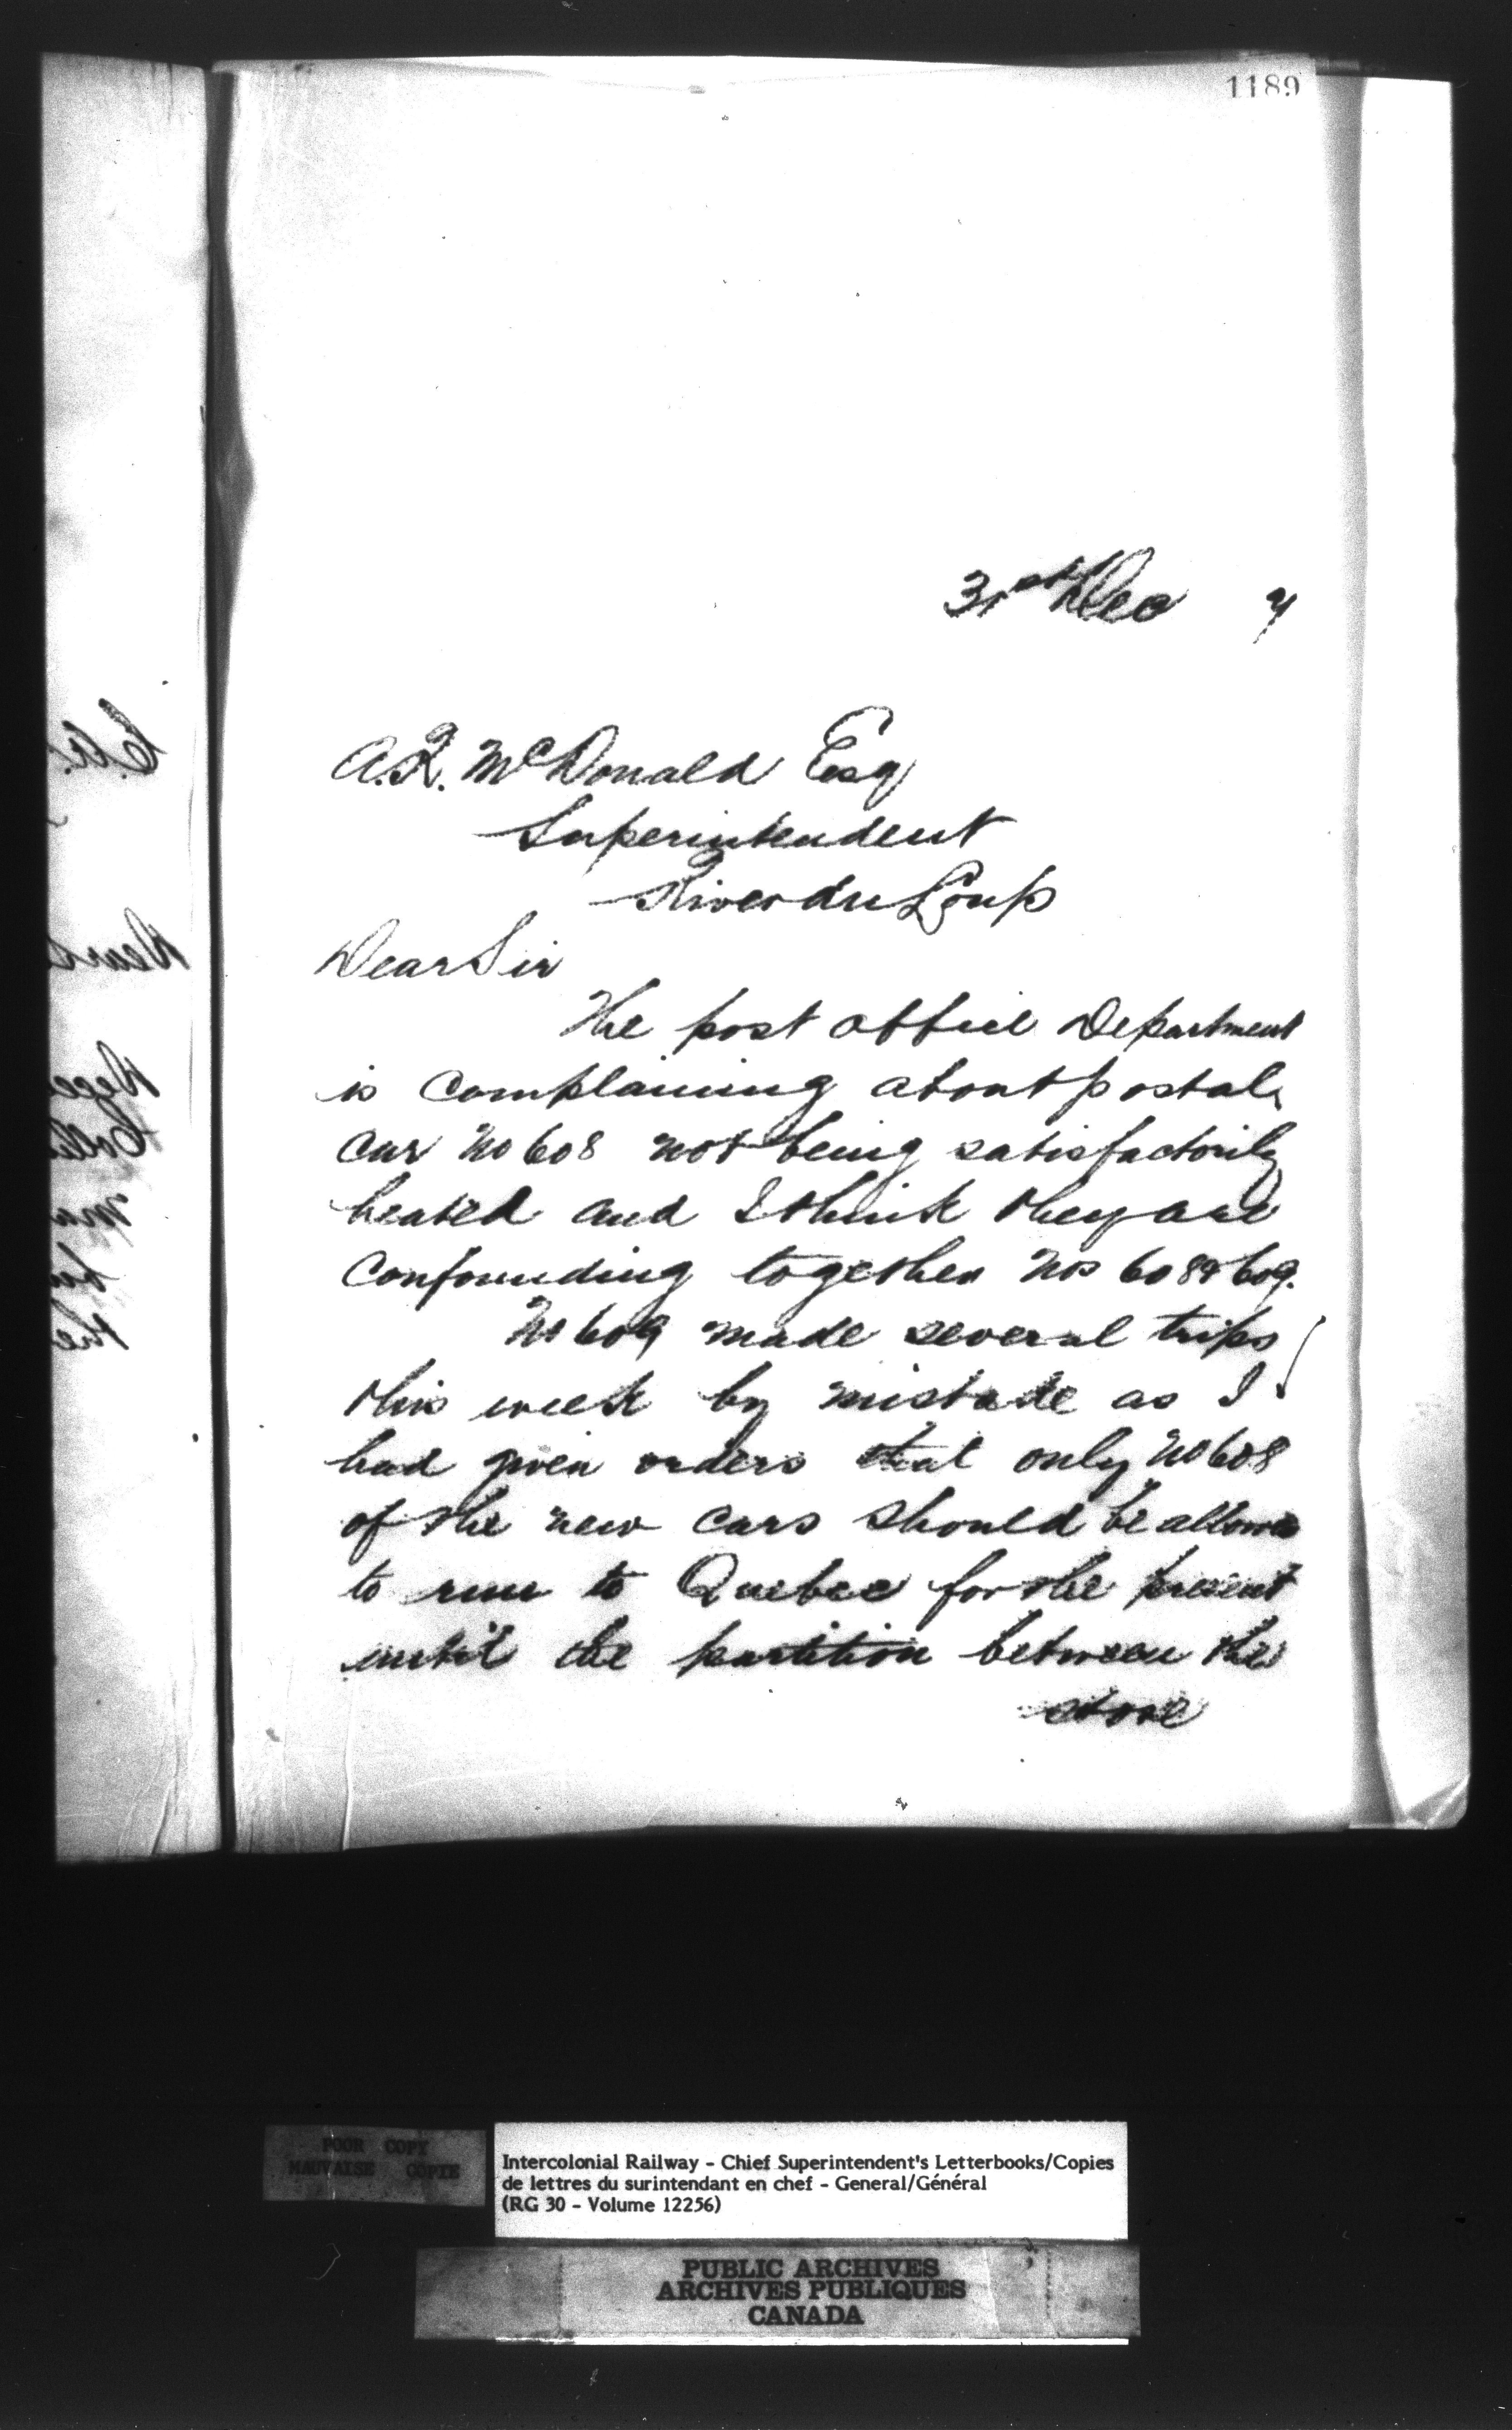 1189
31st Dec 9
A.R. McDonald Esq
Superintendent
River du Loup
Dear Sir
The post office Department
is complaining about postal
car No 608 not being satisfactorily
heated and I think they are
confounding together Nos 608 & 609.
No 609 made several trips
this week by mistake as I
had given orders that only No 608
of the new cars should be allowed
to run to Quebec for the present
until the partition between the
stove
POOR COPY
MAUVAISE COPIE
Intercolonial Railway - Chief Superintendent's Letterbooks/Copies
de lettres du surintendant en chef - General/Général
(RG 30 - Volume 12256)
PUBLIC ARCHIVES
ARCHIVES PUBLIQUES
CANADA